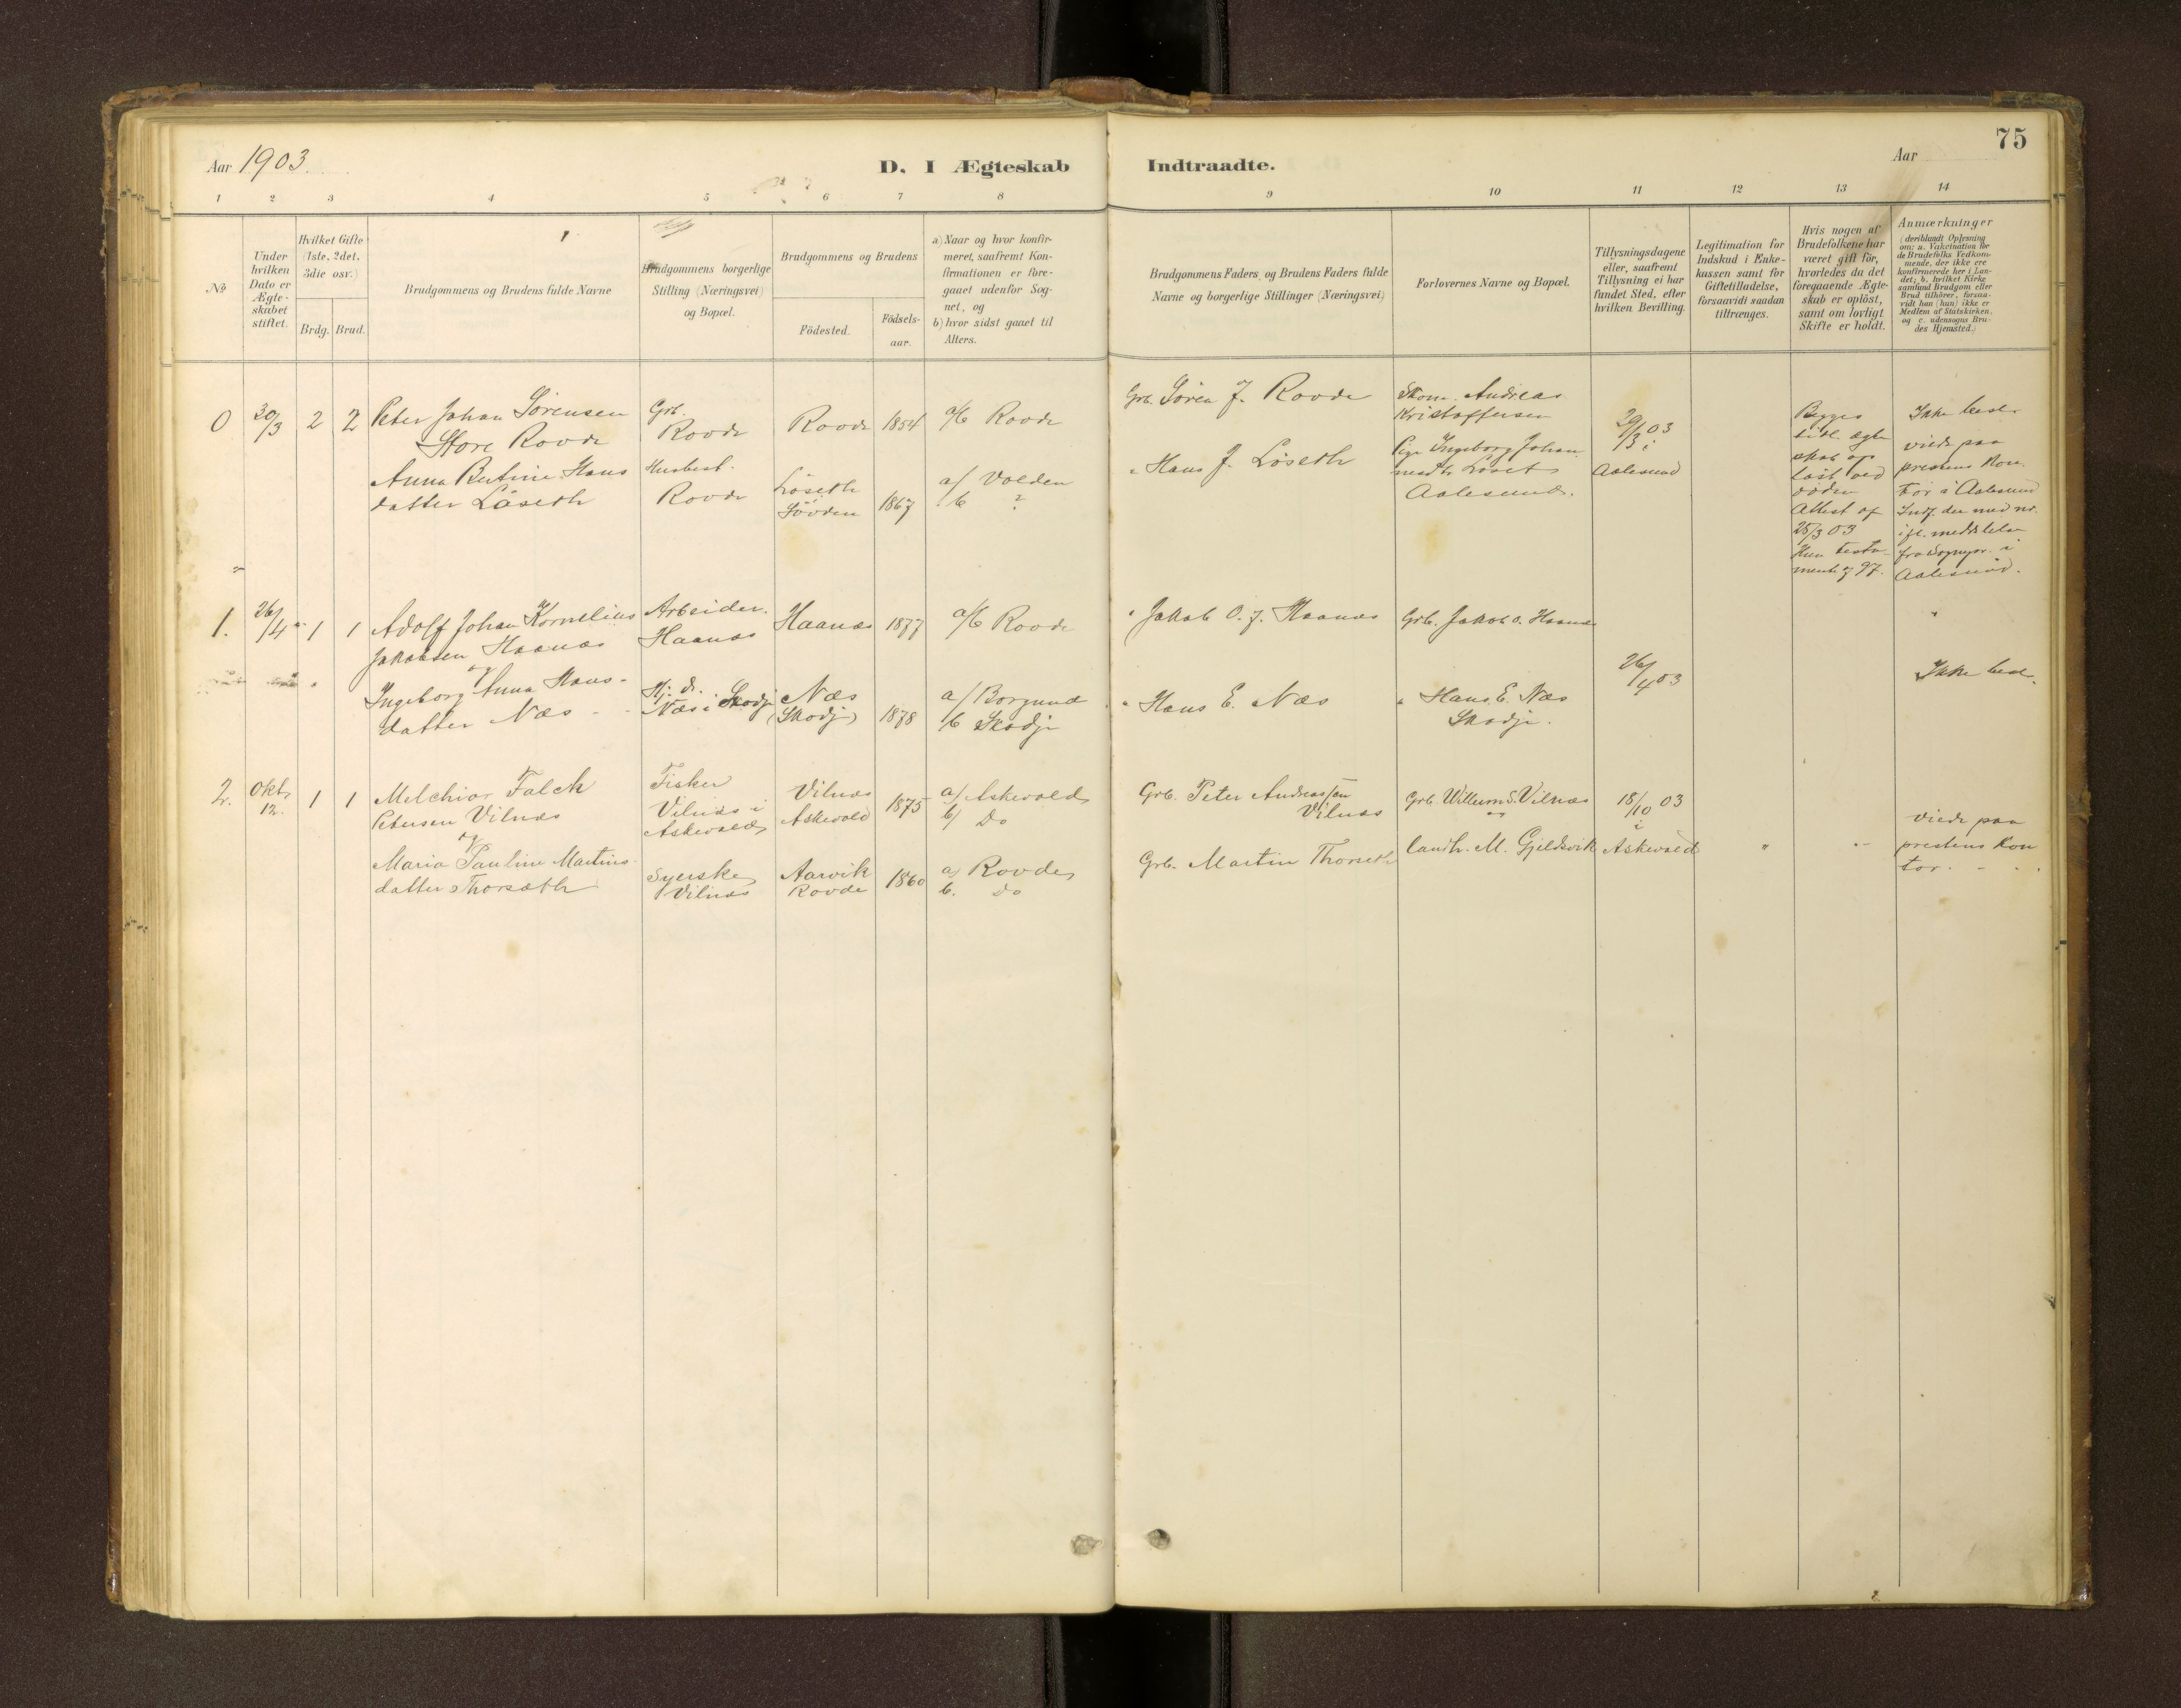 75
Aar 1903.
D. I Ægteskab Indtraadte.
Aar
1 2 3 4 5 6 7 8 9 10 11 12 13 14
No
Under
hvilken
Dato er
Ægte-
skabet
stiftet.
Hvilket Gifte
(1ste, 2det,
3die osv.)
Brdg. Brud.
Brudgommens og Brudens fulde Navne
Brudgommens borgerlige
Stilling (Næringsvei)
og Bopæl.
Brudgommens og Brudens
Födested.
Födsels-
aar.
a) Naar og hvor konfir-
meret, saafremt Kon-
firmationen er fore-
gaaet udenfor Sog-
net, og
b) hvor sidst gaaet til
Alters.
Brudgommens Faders og Brudens Faders fulde
Navne og borgerlige Stillinger (Næringsvei)
Forlovernes Navne og Bopæl.
Tillysningsdagene
eller, saafremt
Tillysning ei har
fundet Sted, efter
hvilken Bevilling.
Legitimation for
Indskud i Enke-
kassen samt for
Giftetilladelse,
forsaavidt saadan
tiltrænges.
Hvis nogen af
Brudefolkene har
været gift før,
hvorledes da det
foregaaende Ægte-
skab er oplöst,
samt om lovligt
Skifte er holdt.
Anmærkninger
(deriblandt Oplysning
om: a. Vakcination for
de Brudefolks Vedkom-
mende, der ikke ere
konfirmerede her i Lan-
det; b. hvilket Kirke-
samfund Brudgom eller
Brud tilhörer, forsaa-
vidt han (hun) ikke er
Medlem af Statskirken,
og c. udensogns Bru-
des Hjemsted.)
0
30/3
2 2
Peter Johan Sörensen
Store Rovde
Anna Bertine Hans
datter Löseth
Grb.
Rovde
Husbest.
Rovde
Rovde 1854
Löseth
Sövden 1867
a/b Rovde
a/ Volden
b ?
Grb. Sören J. Rovde
" Hans J. Löseth
Skom. Andreas
Kristoffersen
Pige Ingeborg Johan
Aalesund.
29/3 03
i
Aalesund
Begges
tidl. ægte
skab op
löst ved
döden
Attest af
25/3 03
Ikke besl.
viede paa
prestens kon.
tor i Aalesund
Indf. der med nr.
ifl. meddelelse
fra Sognepr. i
Aalesund.
1.
26/4
1 1
Adolf Johan Kornelius
Jakobsen Haanæs
og
Ingeborg Anna Hans-
datter Næs
Arbeider.
Haanæs
Næs i Skodje
Haanæs 1877
Næs
(Skodje) 1878
a/b Rovde
a/ Borgund
b Skodje
" Jakob O. J. Haanæs
" Hans E. Næs
Grb. Jakob O. Haanæs
" Hans E. Næs
Skodje.
26/4 03
"
Ikke besl.
2.
Okt.
12.
1 1
Melchior Falch
Petersen Vilnæs
og
Maria Pauline Martins-
datter Thorsæth
Fisker
Vilnæs i
Askevold
Syerske
Vilnæs
Vilnæs
Askevold 1875
Aarvik
Rovde 1860
a/ Askevold
b/ Do
a/ Rovde
b. Do
Grb. Peter Andreassen
Vilnæs
Grb. Martin Thorseth
Grb. Willum S. Vilnæs
og
Landh. M. Gjeldsvik
18/10 03
i
Askevold
"
"
viede paa
prestens Kon
tor.